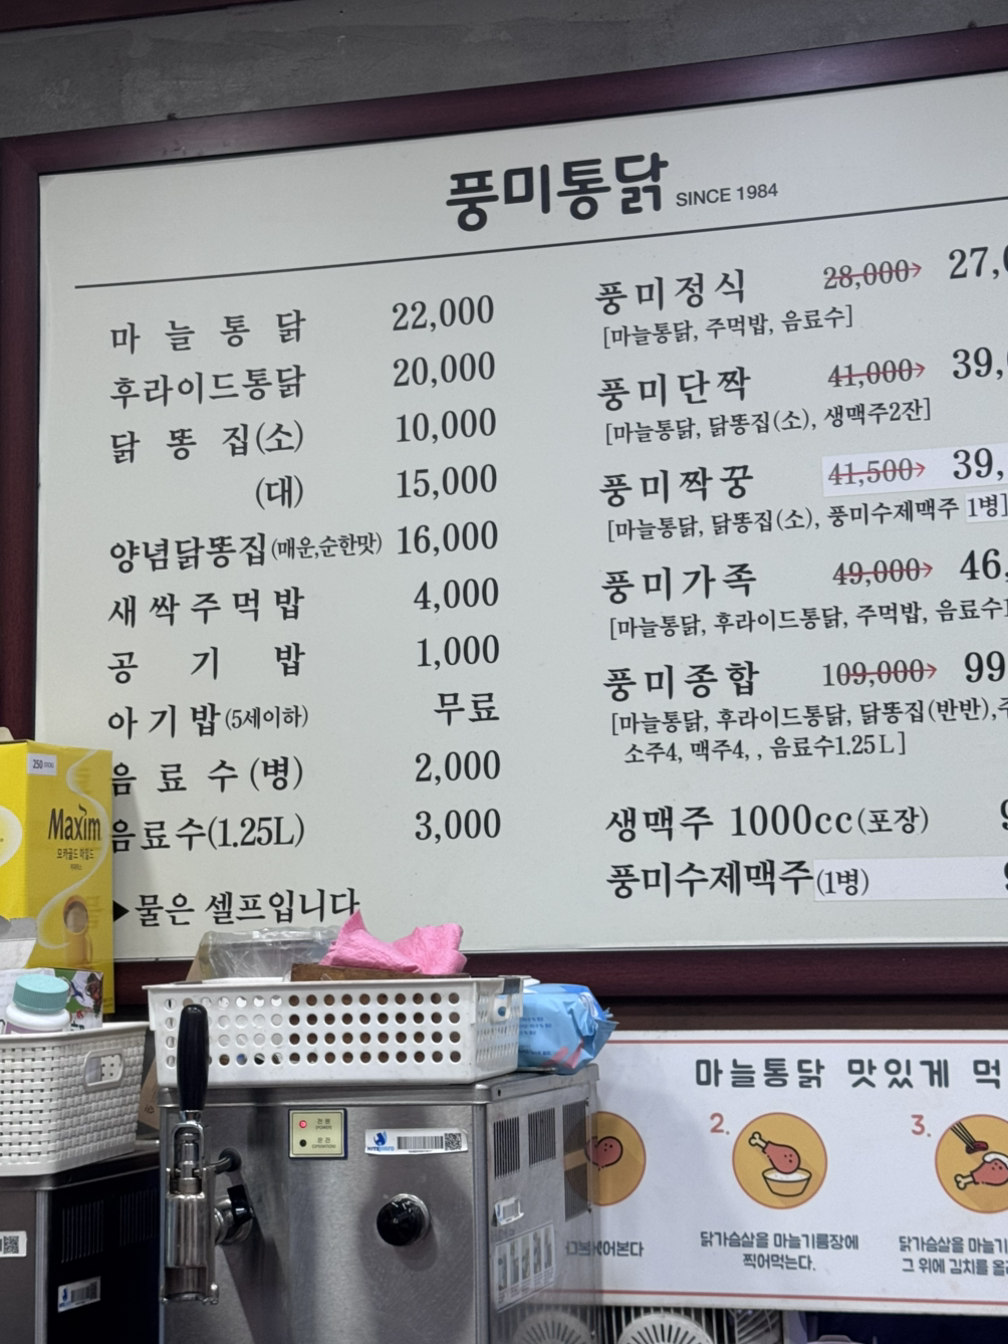 풍미통닭 SINCE 1984
마늘통닭 22,000
후라이드통닭 20,000
닭똥집(소) 10,000
(대) 15,000
양념닭똥집(매운,순한맛) 16,000
새싹주먹밥 4,000
공기밥 1,000
아기밥(5세이하) 무료
음료수(병) 2,000
음료수(1.25L) 3,000
▶물은 셀프입니다
풍미정식 28,000→ 27,
[마늘통닭, 주먹밥, 음료수]
풍미단짝 41,000→ 39,
[마늘통닭, 닭똥집(소), 생맥주2잔]
풍미짝꿍 41,500→ 39,
[마늘통닭, 닭똥집(소), 풍미수제맥주 1병]
풍미가족 49,000→ 46,
[마늘통닭, 후라이드통닭, 주먹밥, 음료수
풍미종합 109,000→ 99
[마늘통닭, 후라이드통닭, 닭똥집(반반),
소주4, 맥주4, , 음료수1.25L]
생맥주 1000cc(포장)
풍미수제맥주(1병)
250
Maxim
모카골드 마일드
마늘통닭 맛있게 먹
2.
3.
닭가슴살을 마늘기름장에
찍어먹는다.
닭가슴살을 마늘기
그 위에 김치를